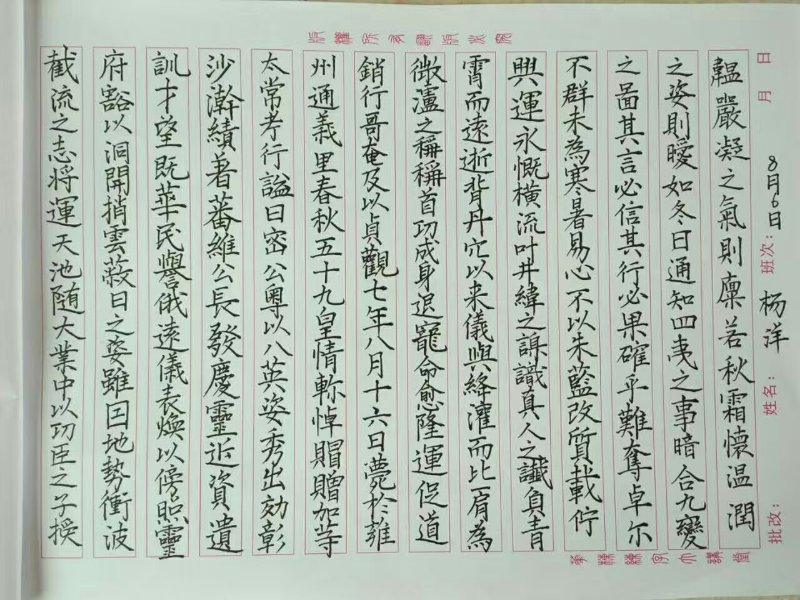 月 日
8月6日
班次：
杨洋
姓名：
批改：
韞嚴凝之氣則凜若秋霜懷温潤
之姿則曖如冬日通知四夷之事暗合九變
之啚其言必信其行必果確乎難奪卓尔
不群未為寒暑易心不以朱藍改質載佇
興運永慨橫流叶井緯之諆識真人之讖負青
霄而遠逝背丹穴以来儀與絳灌而比肩為
微瀘之稱稱首功成身退寵命愈隆運促道
銷行哥奄及以貞觀七年八月十六日薨於雍
州通義里春秋五十九皇情軫悼賵贈加等
太常考行謚曰密公粤以八英姿秀出効彰
沙瀚績著蕃維公長發慶靈近資遺
訓才望既華民譽俄遠儀表煥以傍照靈
府豁以洞開捎雲蔽日之姿雖因地勢衝波
截流之志将運天池随大業中以功臣之子授